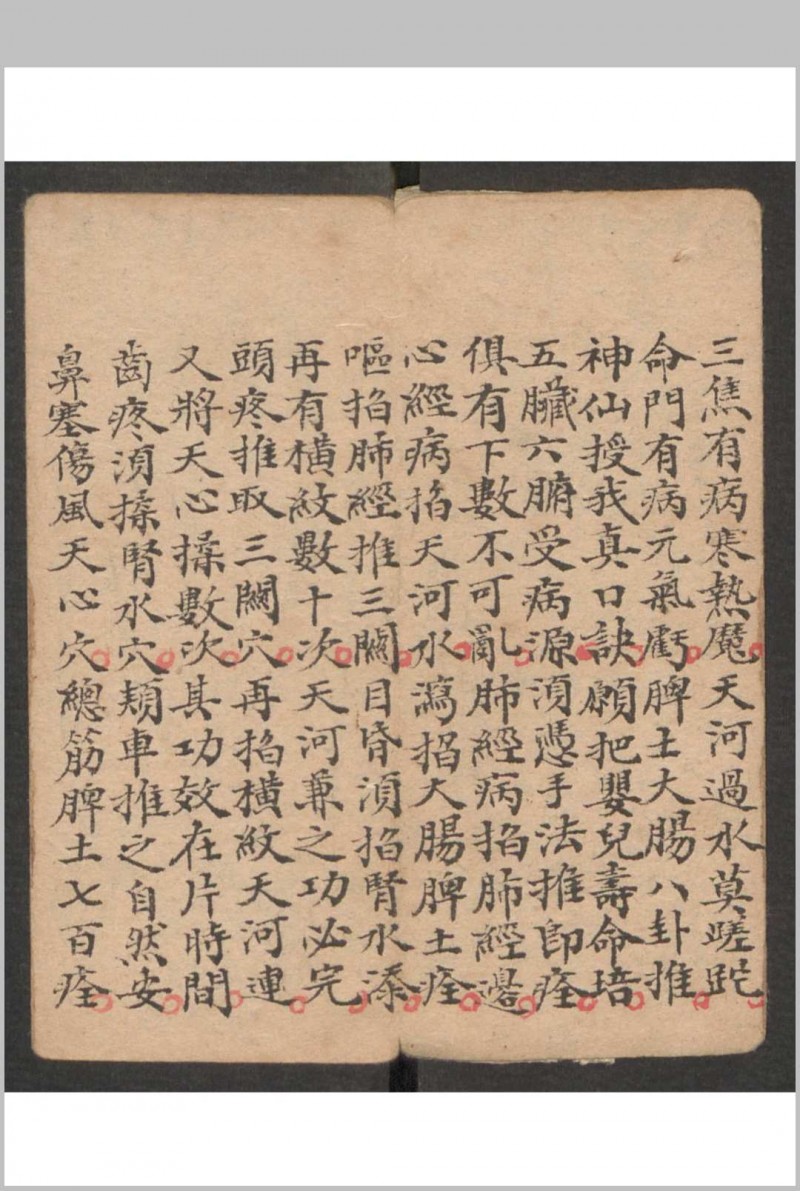 三焦有病寒熱魔天河過水莫蹉跎
命門有病元氣虧脾土大腸八卦推
神仙授我真口訣願把嬰兒壽命培
五臟六腑受病源湏憑手法推即痊
俱有下數不可亂肺經病掐肺經邊
心經病掐天河水瀉掐大腸脾土痊
嘔掐肺經推三關目昏湏掐腎水添
再有橫紋數十次天河兼之功必完
頭疼推取三關穴再掐橫紋天河連
又將天心揉數次其功效在片時間
齒疼湏揉腎水穴頰車推之自然安
鼻塞傷風天心穴總筋脾土七百痊